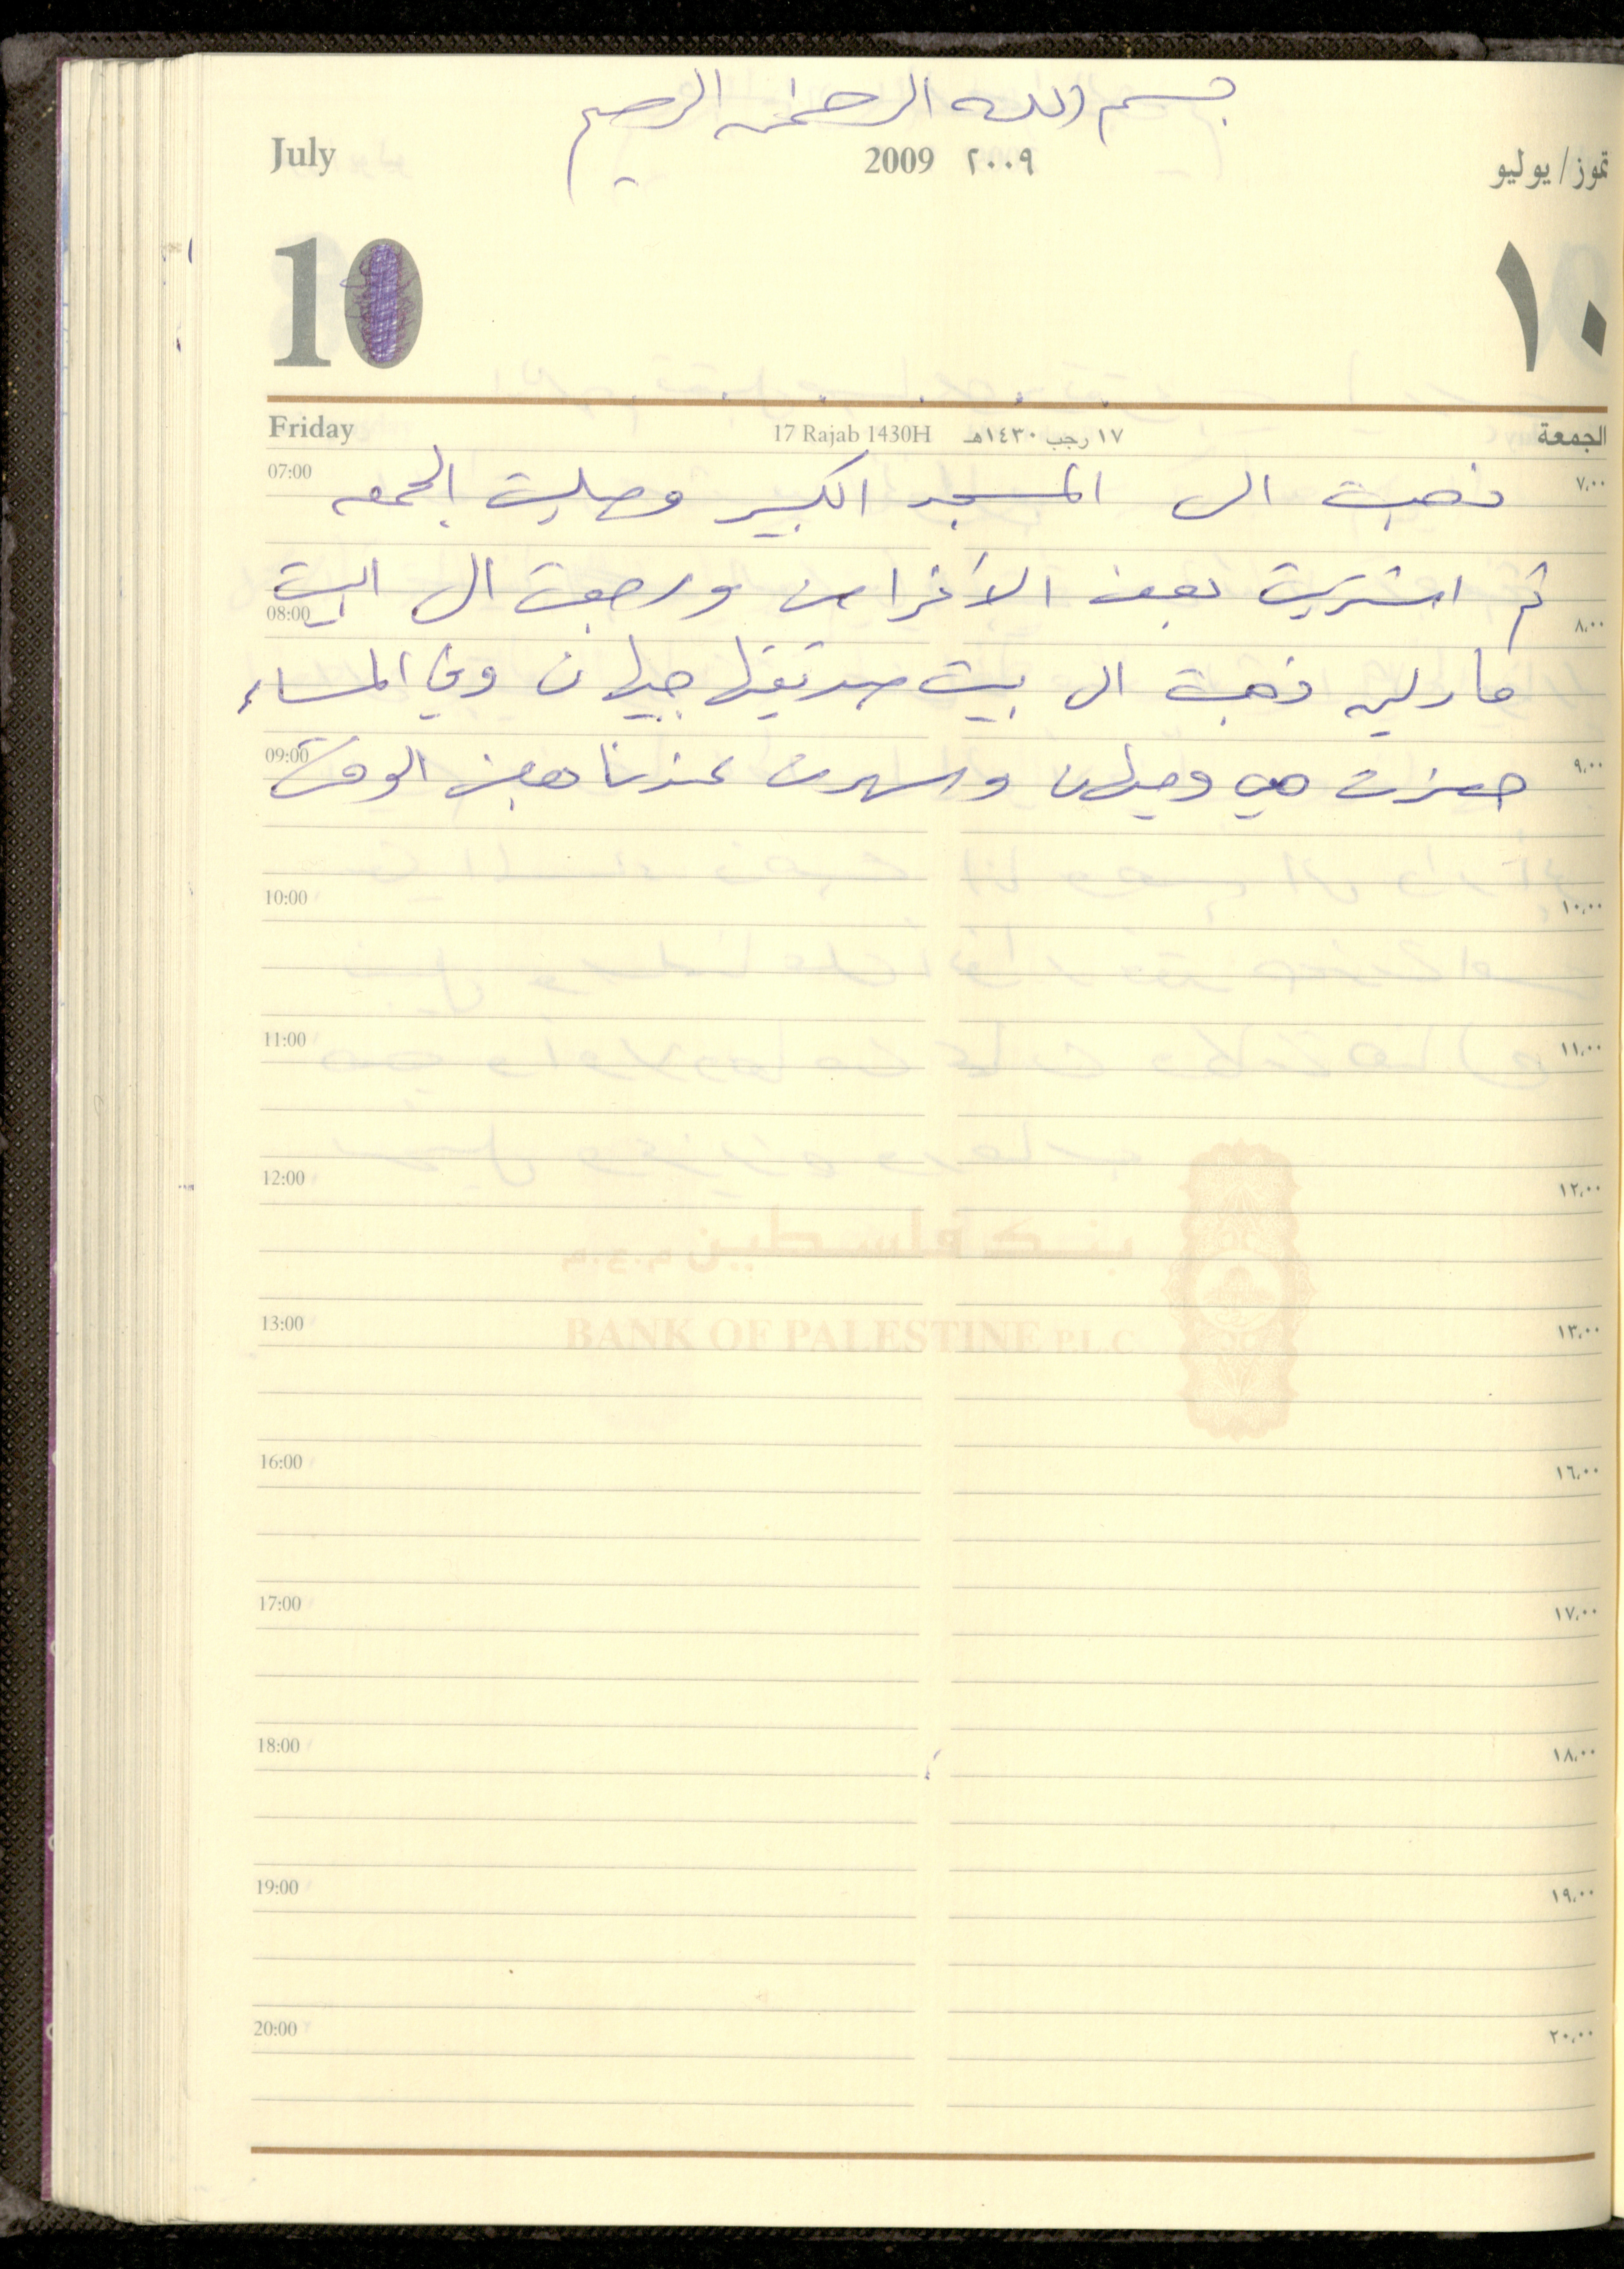 بسم الله الرحمن الرحيم
July 2009 ٢٠٠٩ تموز/يوليو
10 ١٠
Friday 17 Rajab 1430H ١٧ رجب ١٤٣٠هـ الجمعة
07:00 ذهبت الى المسجد الكبير وصليت الجمعه ٧,٠٠
ثم اشتريت بعض الأغراض ورجعت الى البيت
08:00 ٨,٠٠
مارلين ذهبت الى بيت صديقتها جيهان وفي المساء
09:00 حضرت هي وجيهان وسهرت عندنا بعض الوقت ٩,٠٠
10:00 ١٠,٠٠
11:00 ١١,٠٠
12:00 ١٢,٠٠
BANK OF PALESTINE P.L.C
13:00 ١٣,٠٠
16:00 ١٦,٠٠
17:00 ١٧,٠٠
18:00 ١٨,٠٠
19:00 ١٩,٠٠
20:00 ٢٠,٠٠